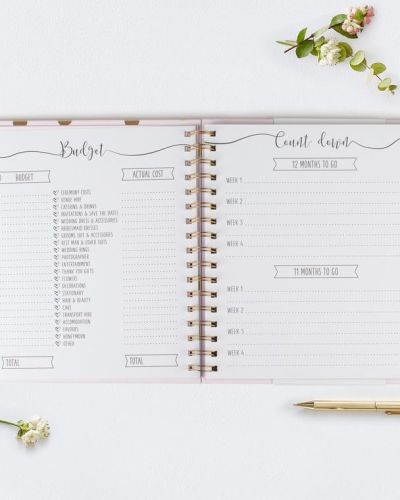 Budget
BUDGET
ACTUAL COST
CEREMONY COSTS
VENUE HIRE
CATERING & DRINKS
INVITATIONS & SAVE THE DATES
WEDDING DRESS & ACCESSORIES
BRIDESMAID DRESSES
GROOMS SUIT & ACCESSORIES
BEST MAN & USHER SUITS
WEDDING RINGS
PHOTOGRAPHER
ENTERTAINMENT
THANK YOU GIFTS
FLOWERS
DECORATIONS
STATIONARY
HAIR & BEAUTY
CAKE
TRANSPORT HIRE
ACCOMODATION
FAVOURS
HONEYMOON
OTHER
TOTAL
TOTAL
Count down
12 MONTHS TO GO
WEEK 1
WEEK 2
WEEK 3
WEEK 4
11 MONTHS TO GO
WEEK 1
WEEK 2
WEEK 3
WEEK 4